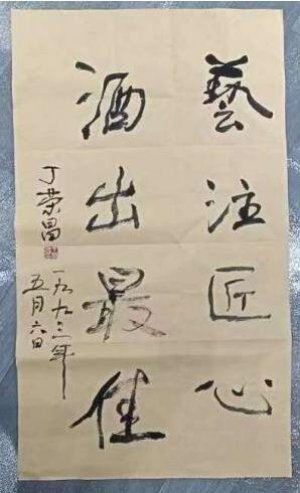 藝注匠心
酒出最佳
丁荣昌
一九九三年
五月六日